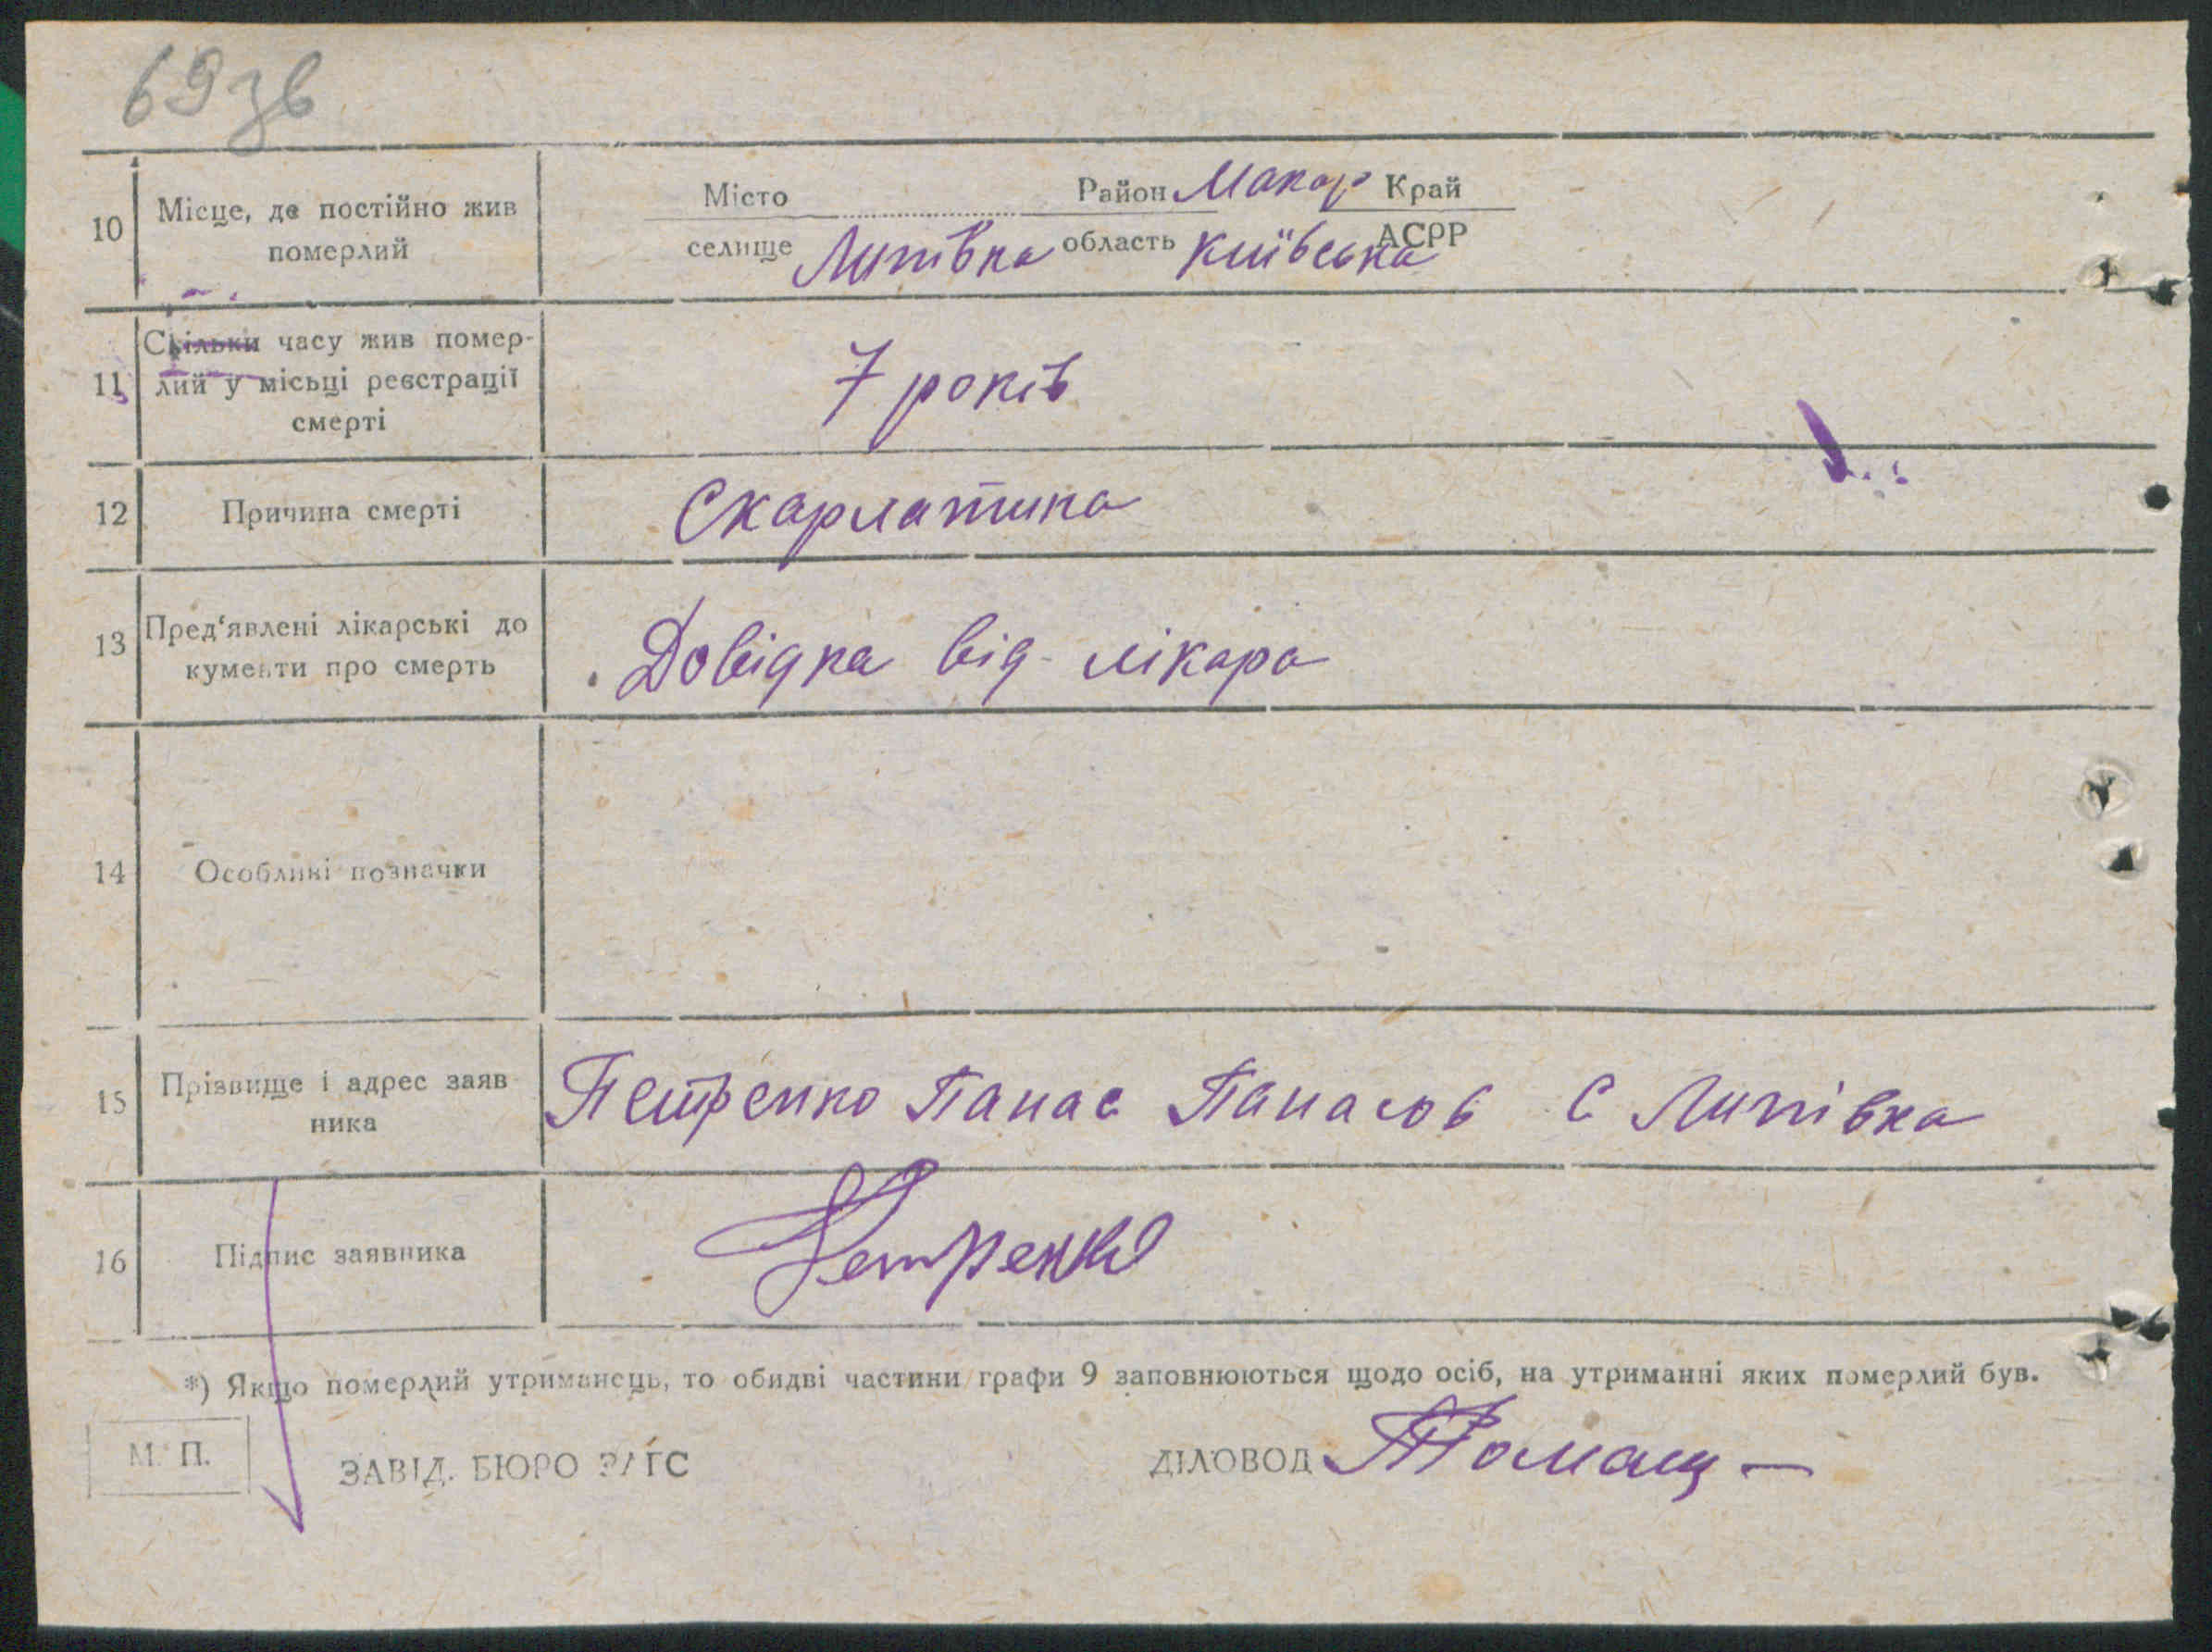 69зв
10 Місце, де постійно жив Місто Район Макар Край
померлий селище Липівка область Київська АСРР
11 Скільки часу жив помер-
лий у місьці реєстрації 7 років
смерті
12 Причина смерті Скарлатина
13 Пред‘явлені лікарські до
кументи про смерть Довідка від лікара
14 Особливі позначки
15 Прізвище і адрес заяв Петренко Панас Панасов с Липівка
ника
16 Підпис заявника Петренко
*) Якщо померлий утриманець, то обидві частини графи 9 заповнюються щодо осіб, на утриманні яких померлий був.
М. П. ЗАВІД. БЮРО ЗАГС ДІЛОВОД